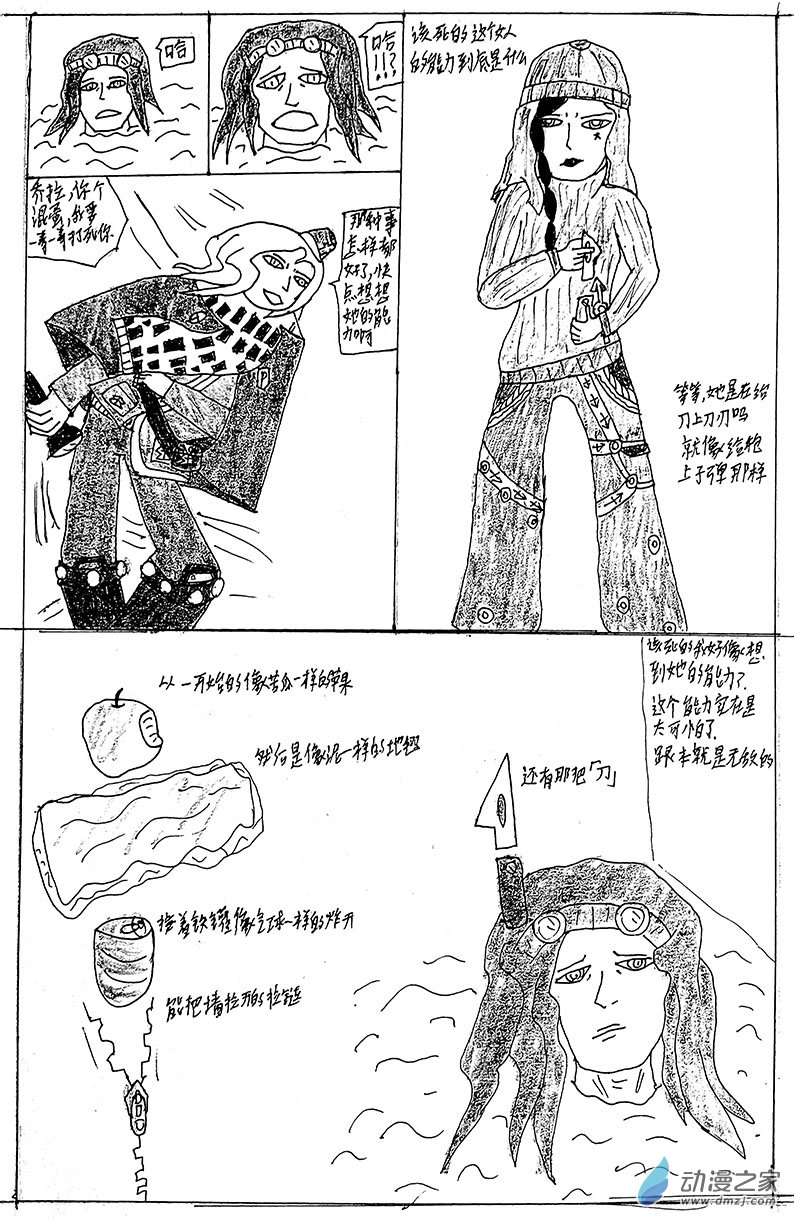 哈
哈
!!?
该死的这个女人
的能力到底是什么
乔拉,你个
混蛋,我要
一拳一拳打死你
那种事
怎么样都
好了,快
点想想
她的能
力啊
等等,她是在给
刀上刀刃吗
就像给枪
上子弹那样
从一开始的像苦瓜一样的苹果
然后是像泥一样的地
该死的我好像想
到她的能力了.
这个能力实在是
太可怕了.
跟本就是无敌的
还有那把「刀」
接着铁罐像气球一样的炸开
能把墙拉开的拉链
动漫之家
www.dmzj.com